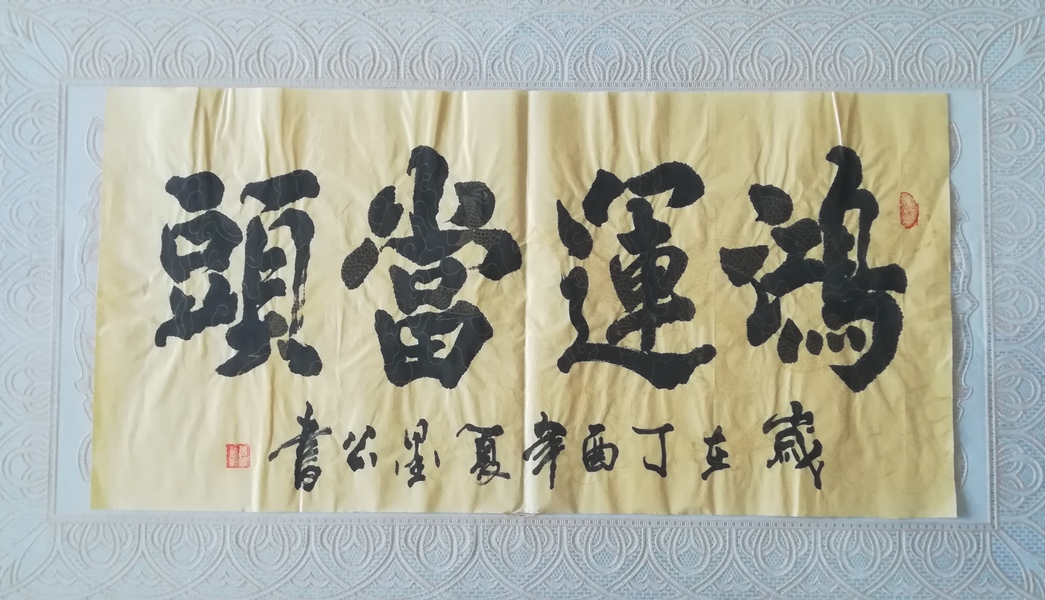 鴻運當頭
歲在丁酉年夏墨公書